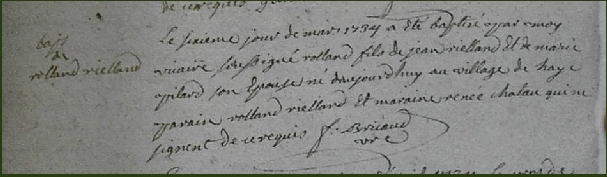 de ce requis
bapt
de
rolland rielland
Le sixieme jour de mars 1734 a été baptisé par moy
vicaire soussigné rolland fils de jean rielland Et de marie
pilard son Epouse né daujourdhuy au village de haye
parain rolland rielland Et maraine renée chatau qui ne
signent de ce requis f. Bricaud
vre